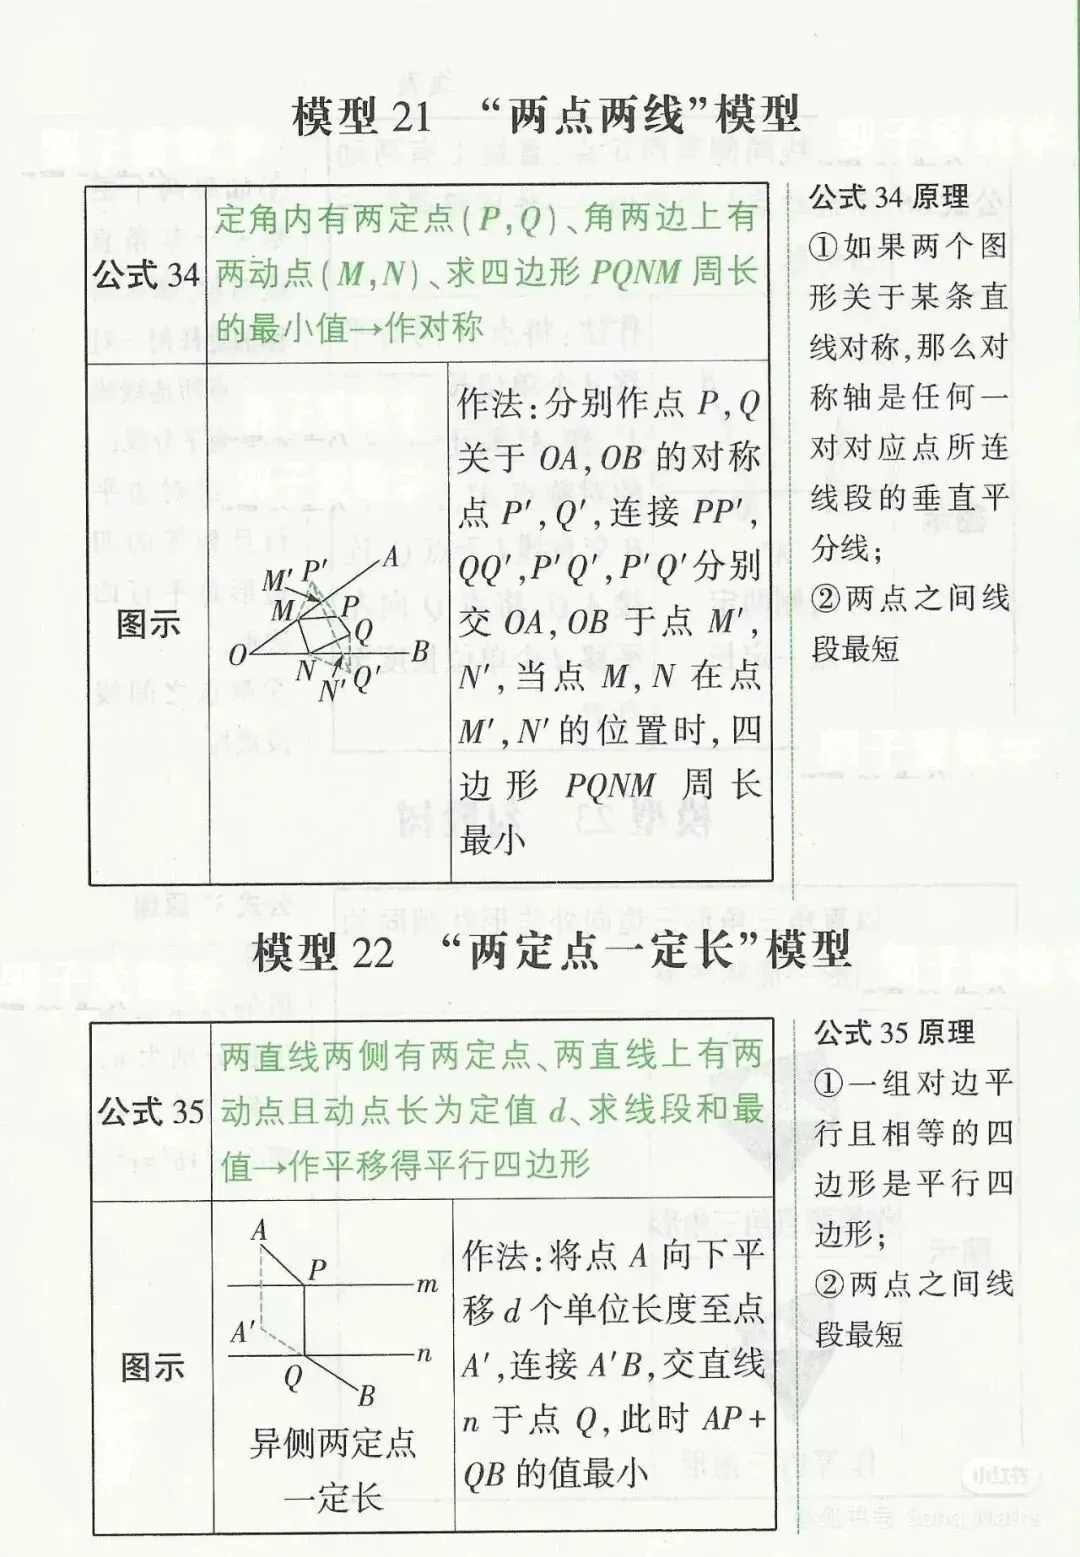 模型 21 “两点两线”模型
公式 34
定角内有两定点(P,Q)、角两边上有
两动点(M,N)、求四边形 PQNM 周长
的最小值→作对称
图示
A
M′
P′
M
P
Q
O
B
N
N′
Q′
作法:分别作点 P,Q
关于 OA,OB 的对称
点 P′,Q′,连接 PP′,
QQ′,P′Q′,P′Q′分别
交 OA,OB 于点 M′,
N′,当点 M,N 在点
M′,N′的位置时,四
边形 PQNM 周长
最小
公式 34 原理
①如果两个图
形关于某条直
线对称,那么对
称轴是任何一
对对应点所连
线段的垂直平
分线;
②两点之间线
段最短
模型 22 “两定点一定长”模型
公式 35
两直线两侧有两定点、两直线上有两
动点且动点长为定值 d、求线段和最
值→作平移得平行四边形
图示
A
P
m
A′
n
Q
B
异侧两定点
一定长
作法:将点 A 向下平
移 d 个单位长度至点
A′,连接 A′B,交直线
n 于点 Q,此时 AP+
QB 的值最小
公式 35 原理
①一组对边平
行且相等的四
边形是平行四
边形;
②两点之间线
段最短
小红书